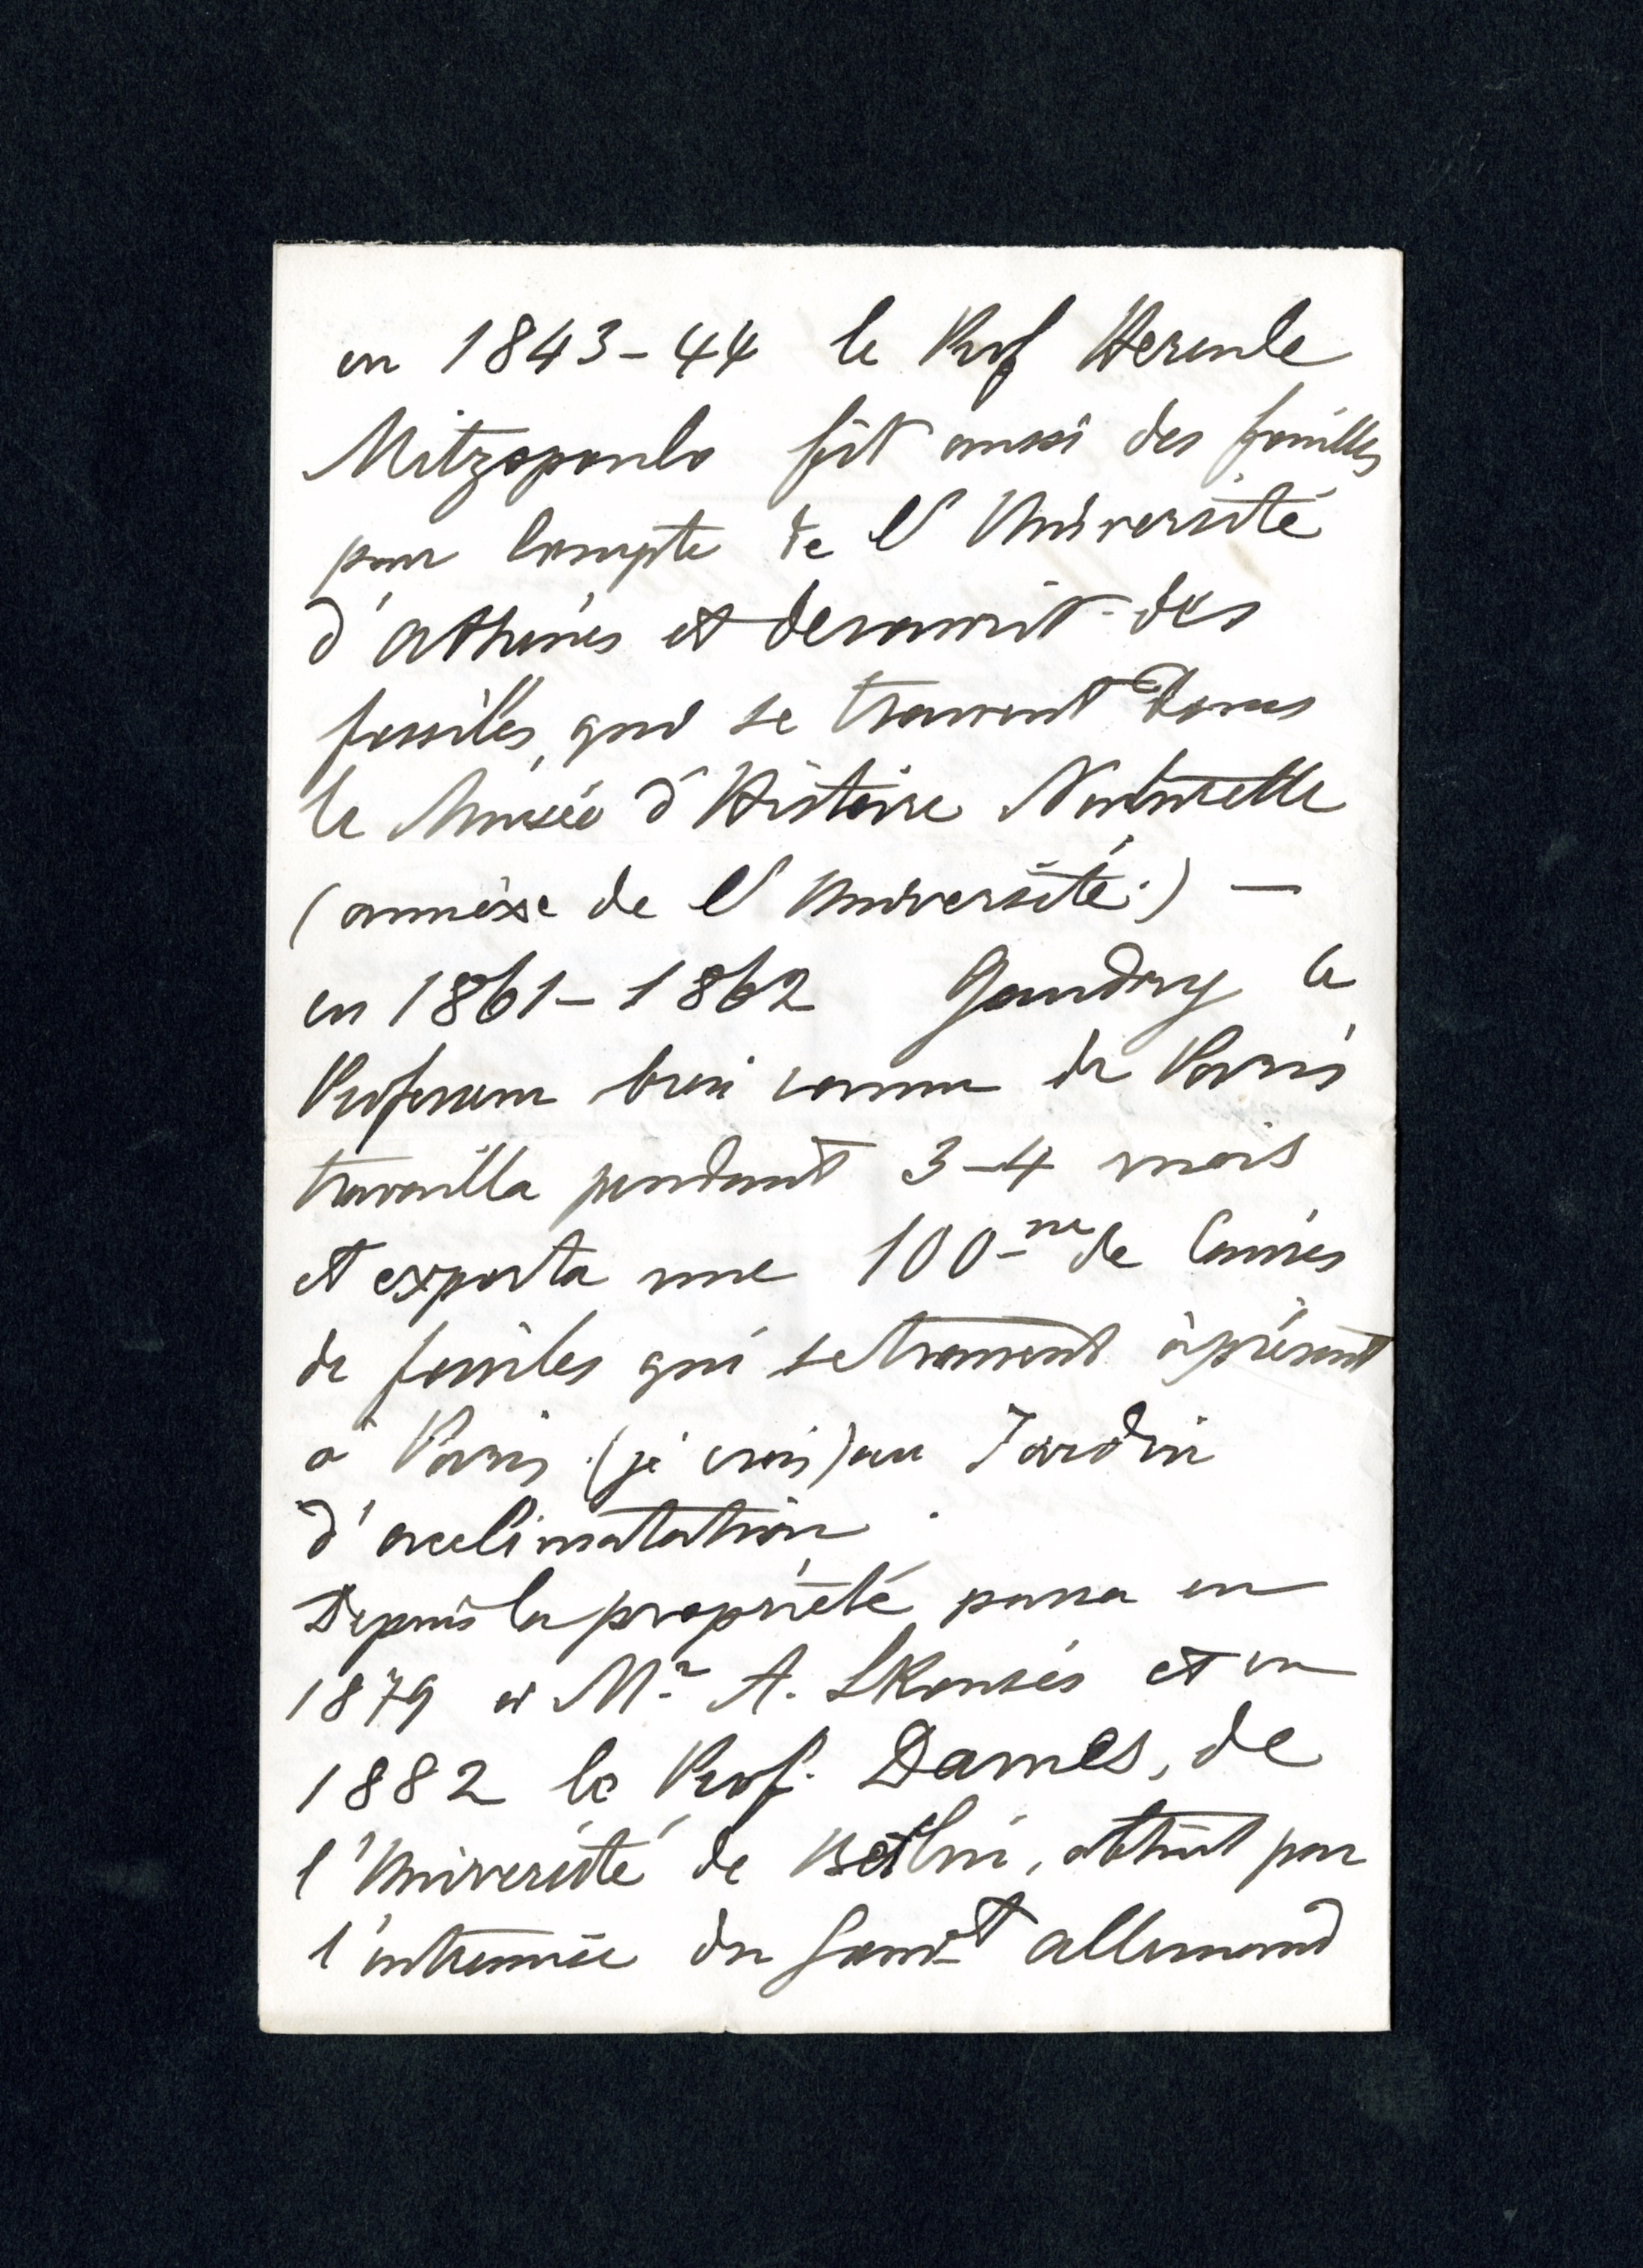 en 1843-44 le Prof Hercule
Mitzopoulo fit aussi des fouilles
pour compte de l'Université
d'Athènes et decouvrit des
fossiles, qui se trouvent dans
le Musée d'Histoire Naturelle
(annèxe de l'Université.) —
en 1861-1862 Gaudry le
Professeur bien connu de Paris
travailla pendant 3-4 mois
et exporta une 100-ne de Caisses
de fossiles qui se trouvent à présent
à Paris (je crois) au Jardin
d'acclimatation.
Depuis la propriété passa en
1879 a Mr. A. Skousés et en
1882 le Prof. Dames, de
l'Université de Berlin, obtint par
l'entremise du Gouvt allemand